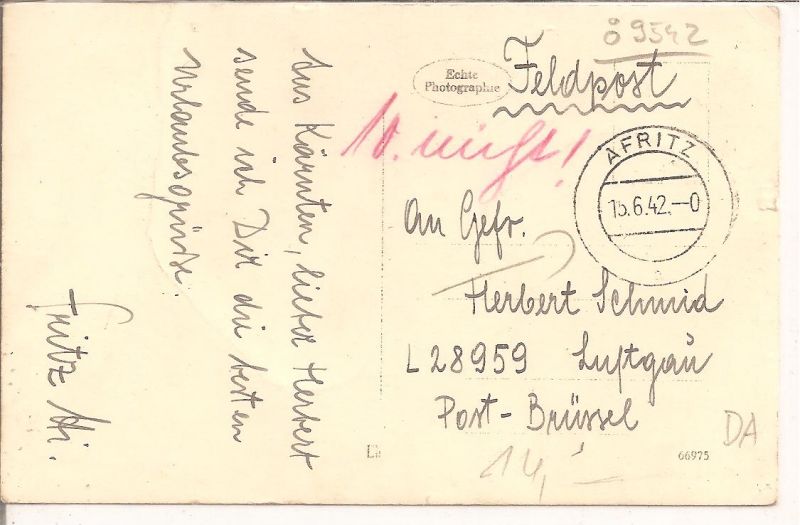 Aus Kärnten, lieber Herbert
sende ich Dir die besten
Urlaubsgrüße.
Fritz
ö 9542
Echte
Photographie
Feldpost
AFRITZ
15.6.42.-0
An Gefr.
Herbert Schmid
L 28959 Luftgau
Post-Brüssel
14,-
DA
66975